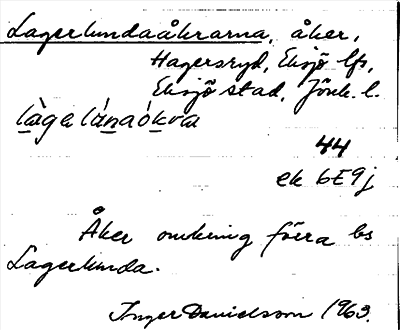 Lagerlundaåkrarna, åker,
Hagersryd, Eksjö lfs,
Eksjö stad, Jönk. l.
làgelúnaókra
44
ek 6E9j
Åker omkring förra bs
Lagerlunda.
Inger Danielsson 1963.